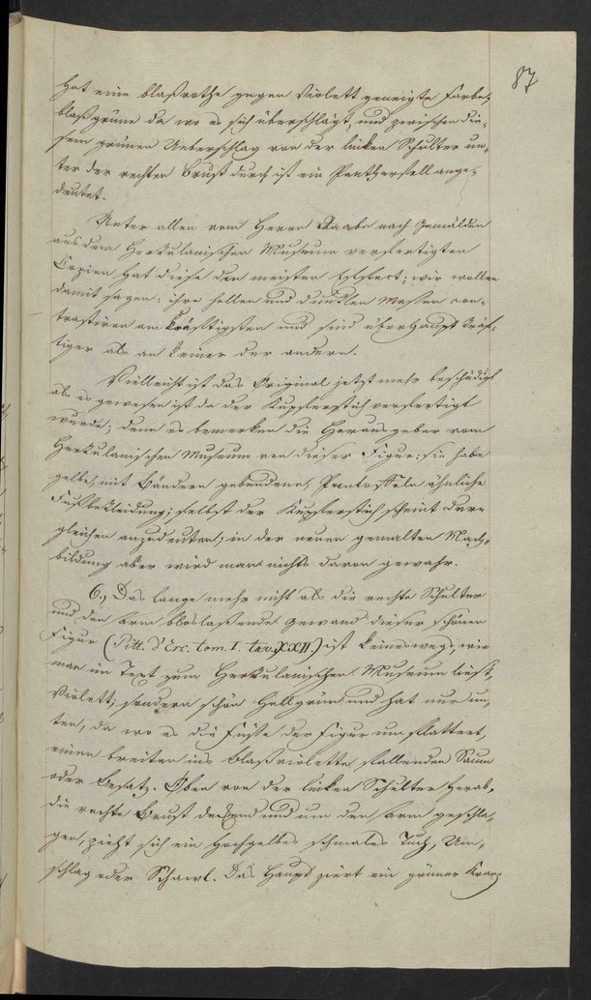 87
hat eine blaßrothe gegen Violett geneigte Farbe,
blaßgrüne da wo es sich überschlägt, und zwischen die-
sem grünen Ueberschlag von der linken Schulter un-
ter der rechten Brust durch ist ein Pantherfell ange-
deutet.
Unter allen vom Herrn Raabe nach Gemälden
aus dem Herkulanischen Museum verfertigten
Copien hat diese den meisten Effect; wir wollen
damit sagen: ihre hellen und dunklen Massen con-
trastiren am kräftigsten und sind überhaupt kräf-
tiger als an keiner der andern.
Vielleicht ist das Original jetzt mehr beschädigt
als es gewesen ist da der Kupferstich verfertigt
wurde; denn es bemerken die Herausgeber vom
Herkulanischen Museum von dieser Figur: sie habe
gelbe, mit Bändern gebundene, Pantoffeln ähnliche
Fußbekleidung; selbst der Kupferstich scheint der-
gleichen anzudeuten; in der neuen gemalten Nach-
bildung aber wird man nichts davon gewahr.
6., Das lange mehr nicht als die rechte Schulter
und den Arm bloslaßende Gewand dieser schönen
Figur (Pitt. d'Erc. tom. I. tav. XXII.) ist keineswegs, wie
man im Text zum Herkulanischen Museum liest,
Violett; sondern schön Hellgrün und hat nur un-
ten, da wo es die Füße der Figur umflattert,
einen breiten ins blaßviolette fallenden Saum
oder Besatz. Oben von der linken Schulter herab,
die rechte Brust deckend und um den Arm geschla-
gen, zieht sich ein hochgelbes schmales Tuch, Um-
schlag oder Schawl. Das Haupt ziert ein grüner Kranz